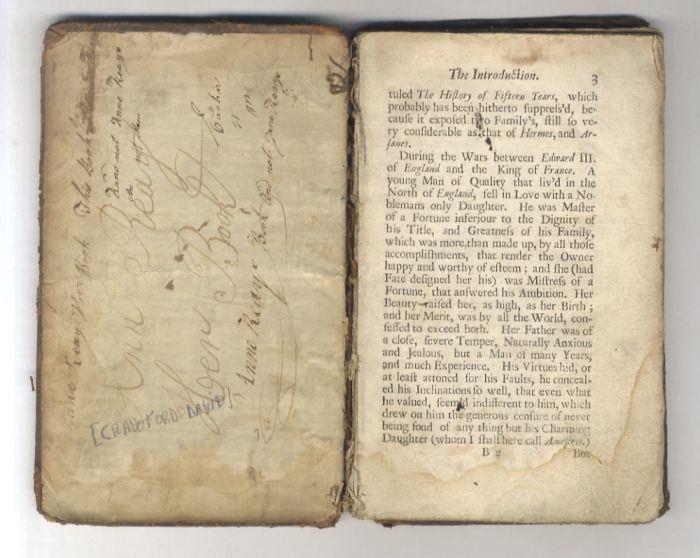 Keay Her Book This Book
Anne not Anne Keays
Ann Keay
Book
Anne Keays Book And not Jane Keays
[CRAWFORD DAVID]
The Introduction.
3
tuled The Hiſtory of Fifteen Years, which
probably has been hitherto ſuppreſs'd, be-
cauſe it expoſed two Family's, ſtill ſo ve-
ry conſiderable as that of Hermes, and Ar-
ſanes.
During the Wars between Edward III.
of England and the King of France. A
young Man of Quality that liv'd in the
North of England, fell in Love with a No-
blemans only Daughter. He was Maſter
of a Fortune inferiour to the Dignity of
his Title, and Greatneſs of his Family,
which was more than made up, by all thoſe
accompliſhments, that render the Owner
happy and worthy of eſteem; and ſhe (had
Fate deſigned her his) was Miſtreſs of a
Fortune, that anſwered his Ambition. Her
Beauty raiſed her, as high, as her Birth;
and her Merit, was by all the World, con-
feſſed to exceed both. Her Father was of
a cloſe, ſevere Temper, Naturally Anxious
and Jealous, but a Man of many Years,
and much Experience. His Virtues hid, or
at leaſt attoned for his Faults, he conceal-
ed his Inclinations ſo well, that even what
he valued, ſeem'd indifferent to him, which
drew on him the generous cenſure of never
being fond of any thing but his Charming
Daughter (whom I ſhall here call Ameſtris.)
B 2
But